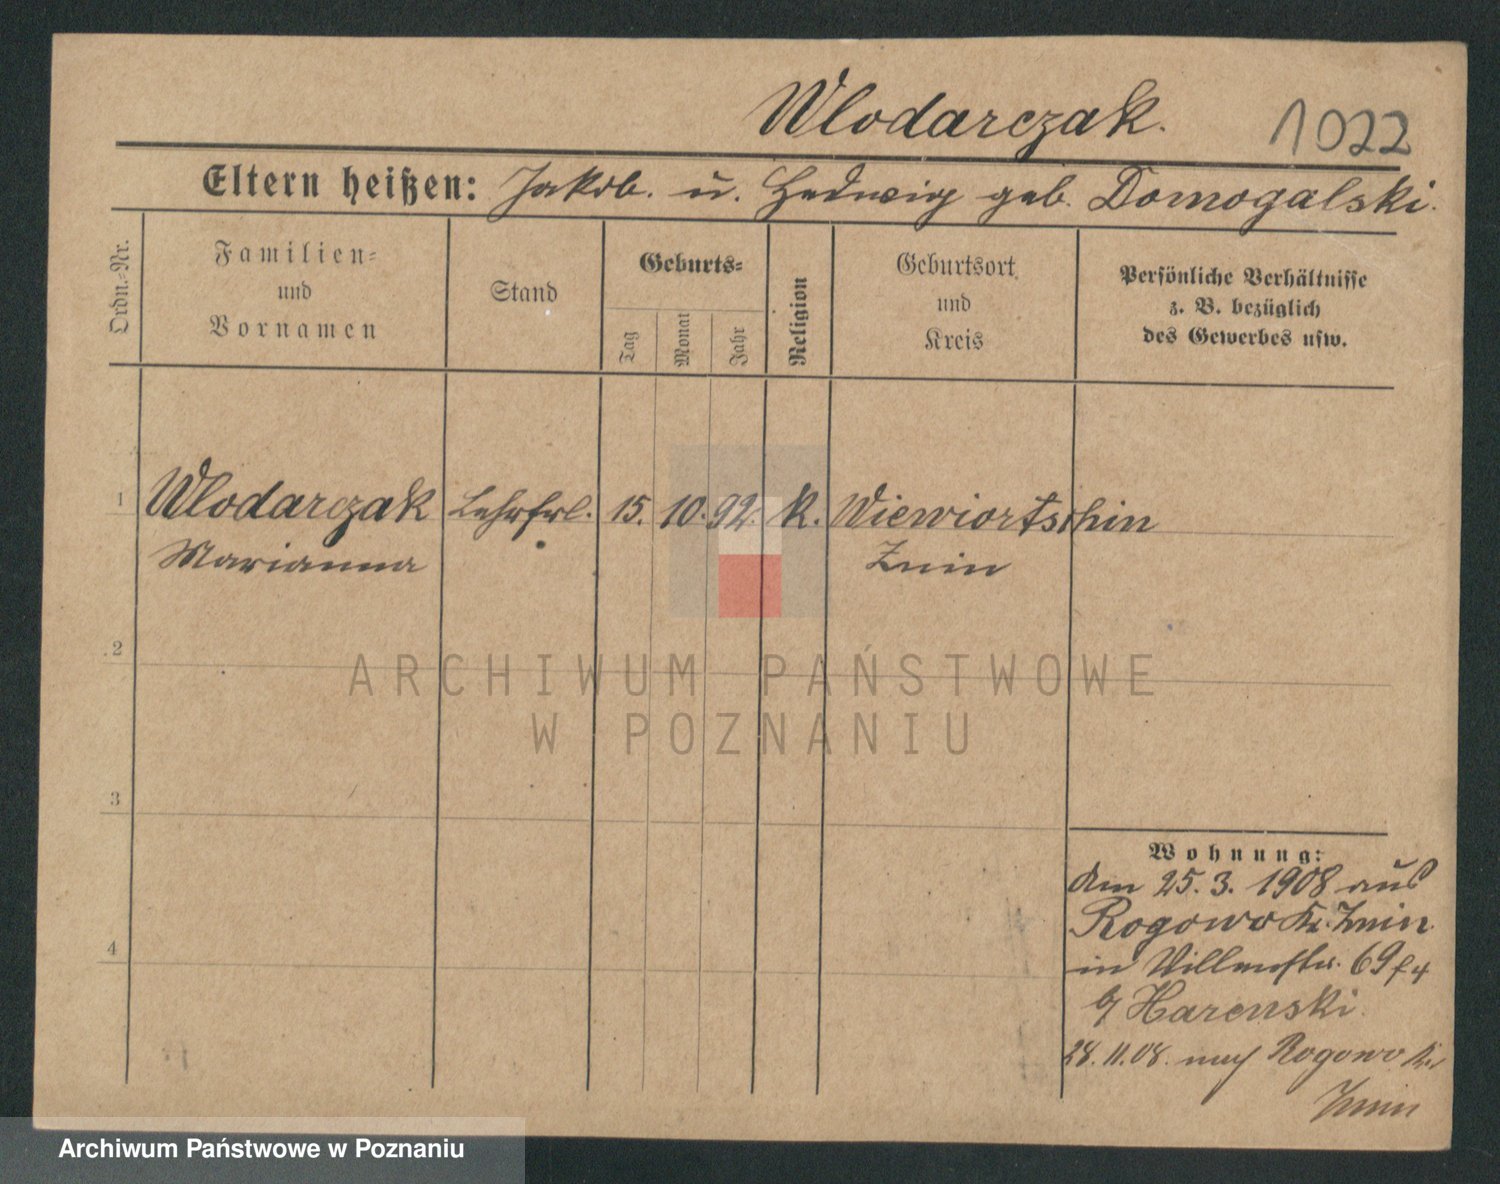 Wlodarczak.
1022
Eltern heißen: Jakob. u. Hedwig geb. Domogalski.
Ordn.-Nr.
Familien-
und
Vornamen
Stand
Geburts-
Tag
Monat
Jahr
Religion
Geburtsort
und
Kreis
Persönliche Verhältnisse
z. B. bezüglich
des Gewerbes usw.
1 Wlodarczak Lehrfrl. 15. 10. 92. k. Wiewiortschin
Marianna Znin
2
ARCHIWUM PAŃSTWOWE
W POZNANIU
3
Wohnung:
am 25. 3. 1908 aus
Rogowo Kr. Znin
4
in 69
b/ Harenski.
28. 11. 08. nach Rogowo Kr.
Znin
Archiwum Państwowe w Poznaniu